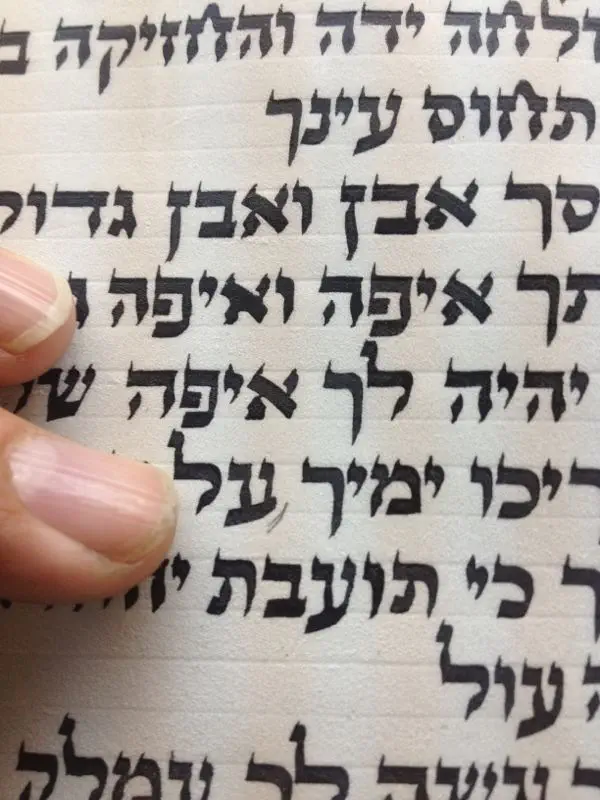 לחה ידה והחזיקה ב
תחוס עינך
סך אבן ואבן גדול
תך איפה ואיפה ג
יהיה לך איפה של
ריכו ימיך על
ך כי תועבת יהוה
ה עול
ר עשה לך עמלק